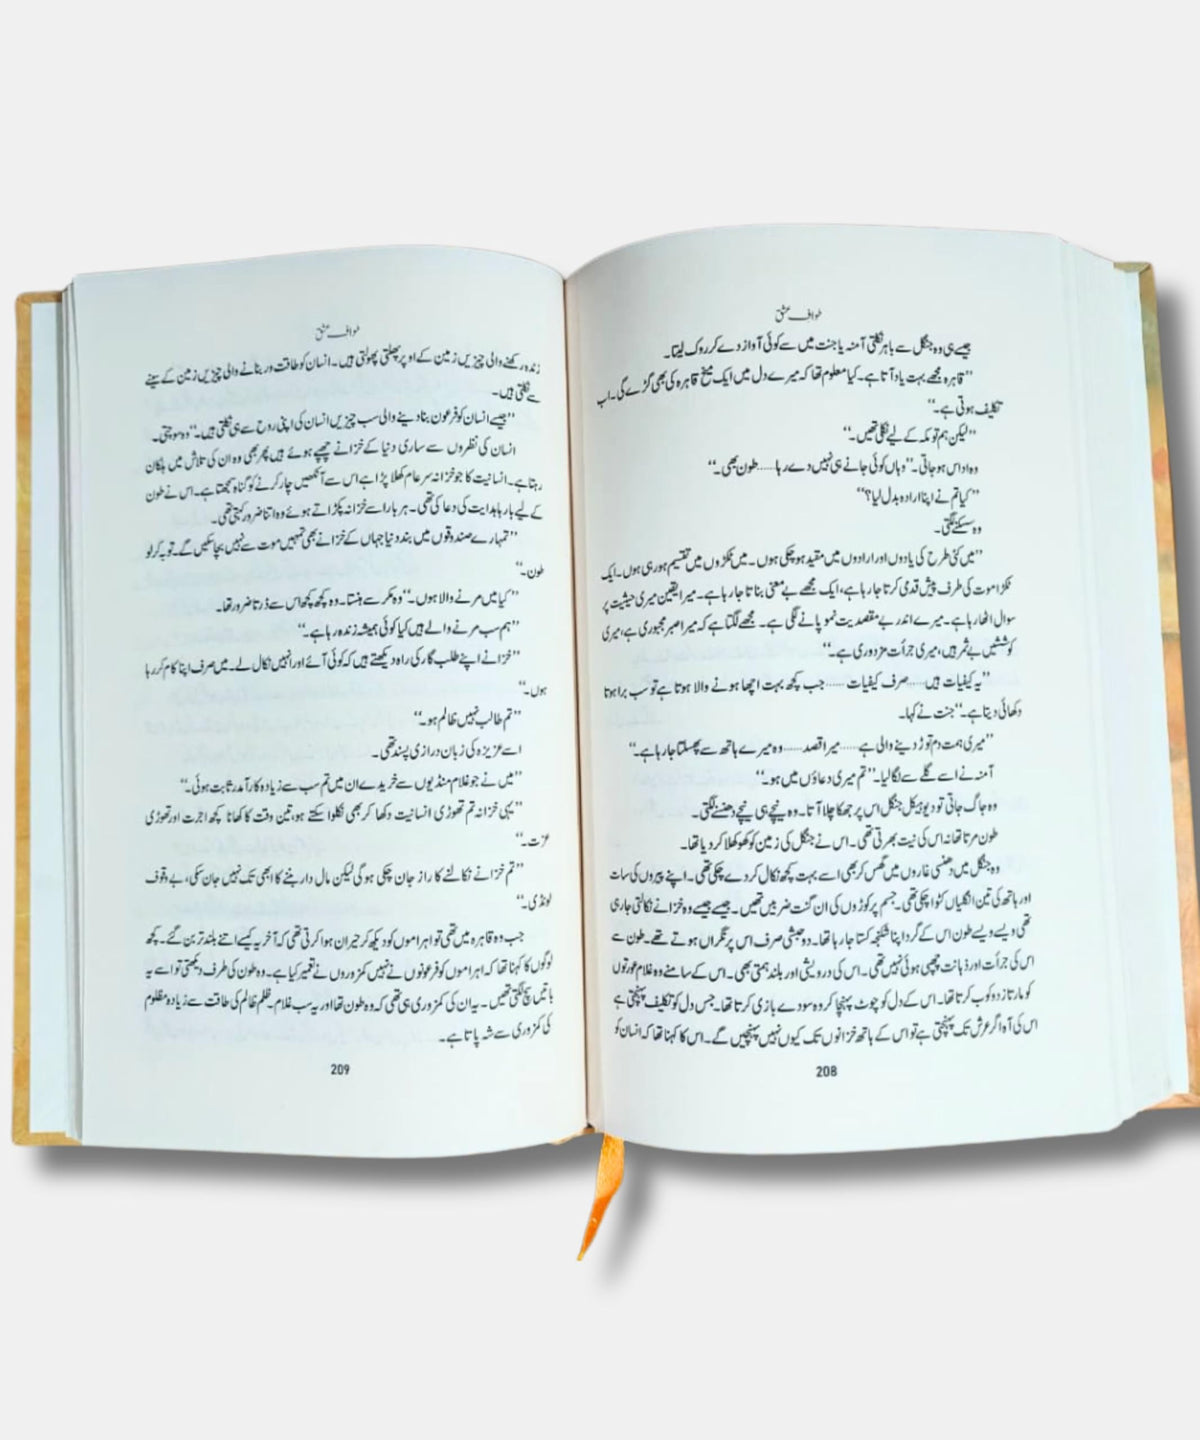 طوافِ عشق
جیسے ہی وہ جنگل سے باہر نکلتی آمنہ یا جنت میں سے کوئی آواز دے کر روک لیتا۔
”قاہرہ مجھے بہت یاد آتا ہے۔ کیا معلوم تھا کہ میرے دل میں ایک میخ قاہرہ کی بھی گڑے گی۔ اب
تکلیف ہوتی ہے۔“
”لیکن ہم تو مکہ کے لیے نکلی تھیں۔“
وہ اداس ہو جاتی۔ ”وہاں کوئی جانے ہی نہیں دے رہا ...... طون بھی۔“
”کیا تم نے اپنا ارادہ بدل لیا؟“
وہ سسکنے لگتی۔
”میں کئی طرح کی یادوں اور ارادوں میں مقید ہو چکی ہوں۔ میں ٹکڑوں میں تقسیم ہو رہی ہوں۔ ایک
ٹکڑا موت کی طرف پیش قدمی کرتا جا رہا ہے، ایک مجھے بے معنی بناتا جا رہا ہے۔ میرا یقین میری حیثیت پر
سوال اٹھا رہا ہے۔ میرے اندر بے مقصدیت نمو پانے لگی ہے۔ مجھے لگتا ہے کہ میرا صبر مجبوری ہے، میری
کوششیں بے ثمر ہیں، میری جرأت مزدوری ہے۔“
”یہ کیفیات ہیں ...... صرف کیفیات ...... جب کچھ بہت اچھا ہونے والا ہوتا ہے تو سب برا ہوتا
دکھائی دیتا ہے۔“ جنت نے کہا۔
”میری ہمت دم توڑ دینے والی ہے ...... میرا قصد ...... وہ میرے ہاتھ سے پھسلتا جا رہا ہے۔“
آمنہ نے اسے گلے سے لگا لیا۔ ”تم میری دعاؤں میں ہو۔“
وہ جاگ جاتی تو دیوہیکل جنگل اس پر جھکا چلا آتا۔ وہ نیچے ہی نیچے دھنسنے لگتی۔
طون مرتا تھا نہ اس کی نیت بھرتی تھی۔ اس نے جنگل کی زمین کو کھوکھلا کر دیا تھا۔
وہ جنگل میں دھنسی غاروں میں گھس کر بھی اسے بہت کچھ نکال کر دے چکی تھی۔ اپنے پیروں کی سات
اور ہاتھ کی تین انگلیاں کٹوا چکی تھی۔ جسم پر کوڑوں کی ان گنت ضربیں تھیں۔ جیسے جیسے وہ خزانے نکالتی جا رہی
تھی ویسے ویسے طون اس کے گرد اپنا شکنجہ کستا جا رہا تھا۔ دو حبشی صرف اس پر نگراں ہوتے تھے۔ طون سے
اس کی جرأت اور ذہانت چھپی ہوئی نہیں تھی۔ اس کی درویشی اور بلند ہمتی بھی۔ اس کے سامنے وہ غلام عورتوں
کو مارتا زدوکوب کرتا تھا۔ اس کے دل کو چوٹ پہنچا کر وہ سودے بازی کرتا تھا۔ جس دل کو تکلیف پہنچتی ہے
اس کی آہ اگر عرش تک پہنچتی ہے تو اس کے ہاتھ خزانوں تک کیوں نہیں پہنچیں گے۔ اس کا کہنا تھا کہ انسان کو
208
طوافِ عشق
زندہ رکھنے والی چیزیں زمین کے اوپر پھلتی پھولتی ہیں۔ انسان کو طاقت ور بنانے والی چیزیں زمین کے سینے
سے نکلتی ہیں۔
”جیسے انسان کو فرعون بنا دینے والی سب چیزیں انسان کی اپنی روح سے ہی نکلتی ہیں۔“ وہ سوچتی۔
انسان کی نظروں سے ساری دنیا کے خزانے چھپے ہوئے ہیں پھر بھی وہ ان کی تلاش میں ہلکان
رہتا ہے۔ انسانیت کا جو خزانہ سر عام کھلا پڑا ہے اس سے آنکھیں چار کرنے کو گناہ سمجھتا ہے۔ اس نے طون
کے لیے بارہا ہدایت کی دعا کی تھی۔ ہر بار اسے خزانہ پکڑاتے ہوئے وہ اتنا ضرور کہتی تھی۔
”تمہارے صندوقوں میں بند دنیا جہاں کے خزانے بھی تمہیں موت سے نہیں بچا سکیں گے۔ توبہ کر لو
طون۔“
”کیا میں مرنے والا ہوں۔“ وہ مکر سے ہنستا۔ وہ کچھ کچھ اس سے ڈرتا ضرور تھا۔
”ہم سب مرنے والے ہیں کیا کوئی ہمیشہ زندہ رہا ہے۔“
”خزانے اپنے طلب گار کی راہ دیکھتے ہیں کہ کوئی آئے اور انہیں نکال لے۔ میں صرف اپنا کام کر رہا
ہوں۔“
”تم طالب نہیں ظالم ہو۔“
اسے عزیزہ کی زبان درازی پسند تھی۔
”میں نے جو غلام منڈیوں سے خریدے ان میں تم سب سے زیادہ کارآمد ثابت ہوئی۔“
”یہی خزانہ تم تھوڑی انسانیت دکھا کر بھی نکلوا سکتے ہو، تین وقت کا کھانا کچھ اجرت اور تھوڑی
عزت۔“
”تم خزانے نکالنے کا راز جان چکی ہو گی لیکن مال دار بننے کا ابھی تک نہیں جان سکی، بے وقوف
لونڈی۔“
جب وہ قاہرہ میں تھی تو اہراموں کو دیکھ کر حیران ہوا کرتی تھی کہ آخر یہ کیسے اتنے بلند تر بن گئے۔ کچھ
لوگوں کا کہنا تھا کہ اہراموں کو فرعونوں نے نہیں کمزوروں نے تعمیر کیا ہے۔ وہ طون کی طرف دیکھتی تو اسے یہ
باتیں سچ لگتی تھیں۔ یہ ان کی کمزوری ہی تھی کہ وہ طون تھا اور یہ سب غلام۔ ظلم ظالم کی طاقت سے زیادہ مظلوم
کی کمزوری سے شہ پاتا ہے۔
209